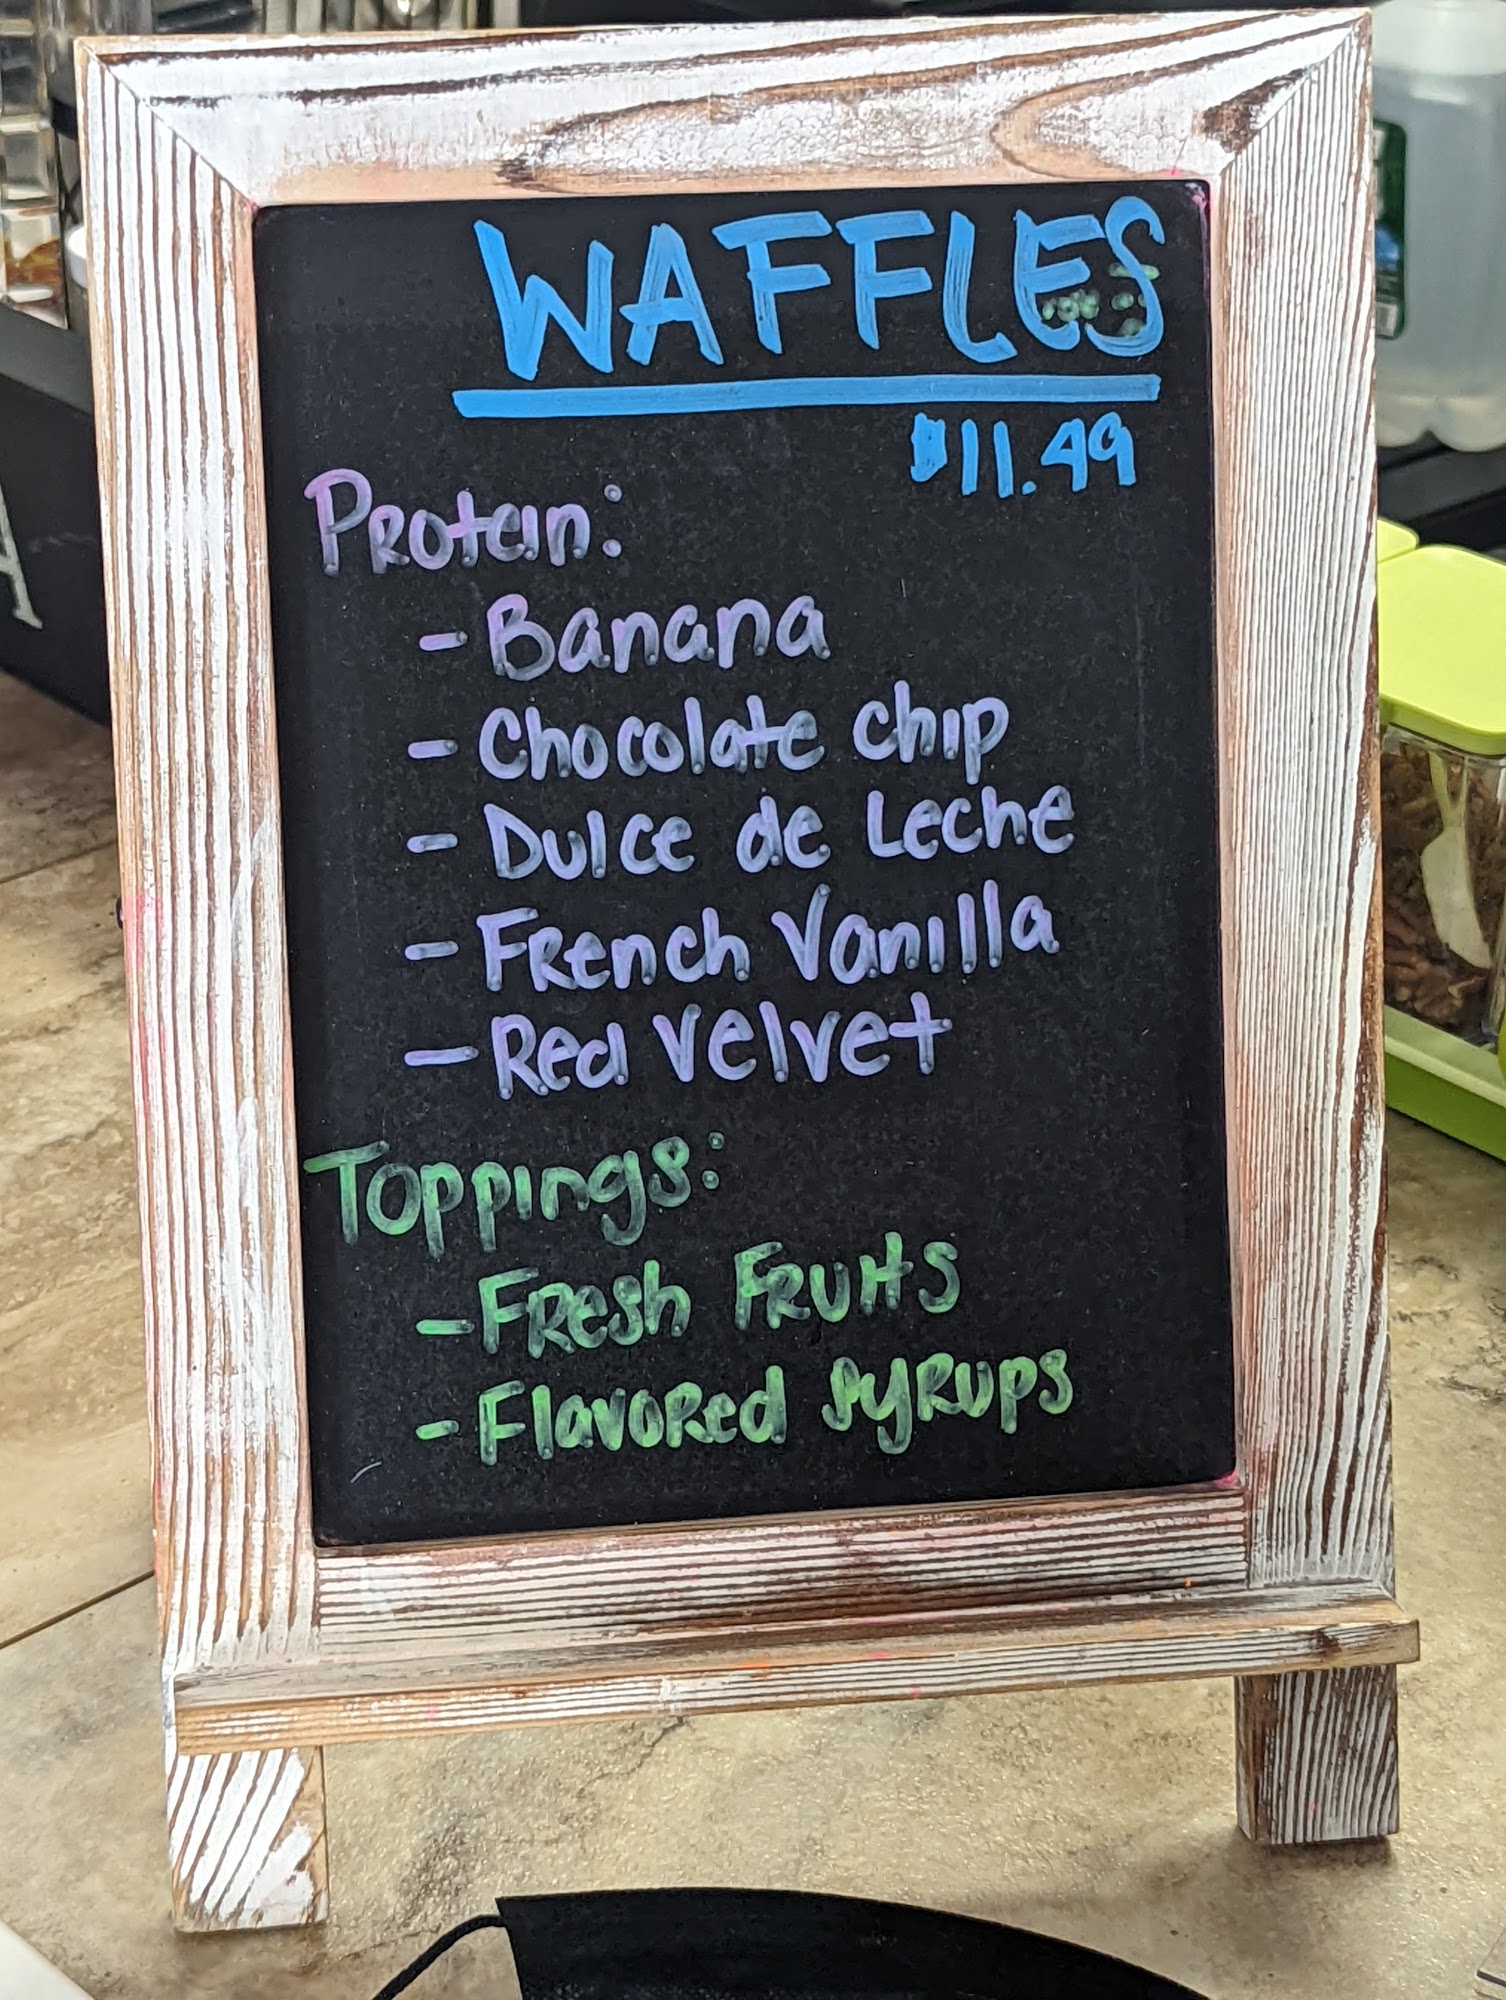 WAFFLES
$11.49
Protein:
- Banana
- Chocolate chip
- Dulce de Leche
- French Vanilla
- Red Velvet
Toppings:
- Fresh Fruits
- Flavored syrups
A